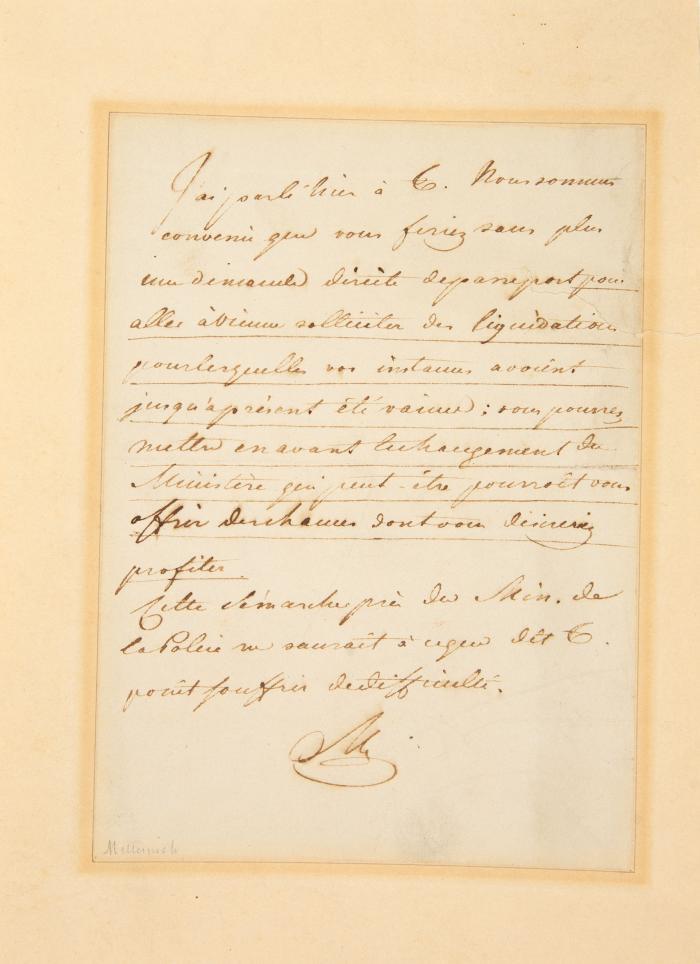 J'ai parlé hier à C. Nous sommes
convenû que vous feriez sans plus
une demande directe de passeport pour
aller à Vienne solliciter des liquidations
pour lesquelles vos instances avoient
jusqu'à présent été vaines; vous pourrez
mettre en avant le changement du
Ministère qui peut-être pourroit vous
offrir des chances dont vous désireriez
profiter.
Cette démarche près du Min. de
la Police ne sauroit à ce que dit C.
point souffrir de difficulté.
M
Metternich